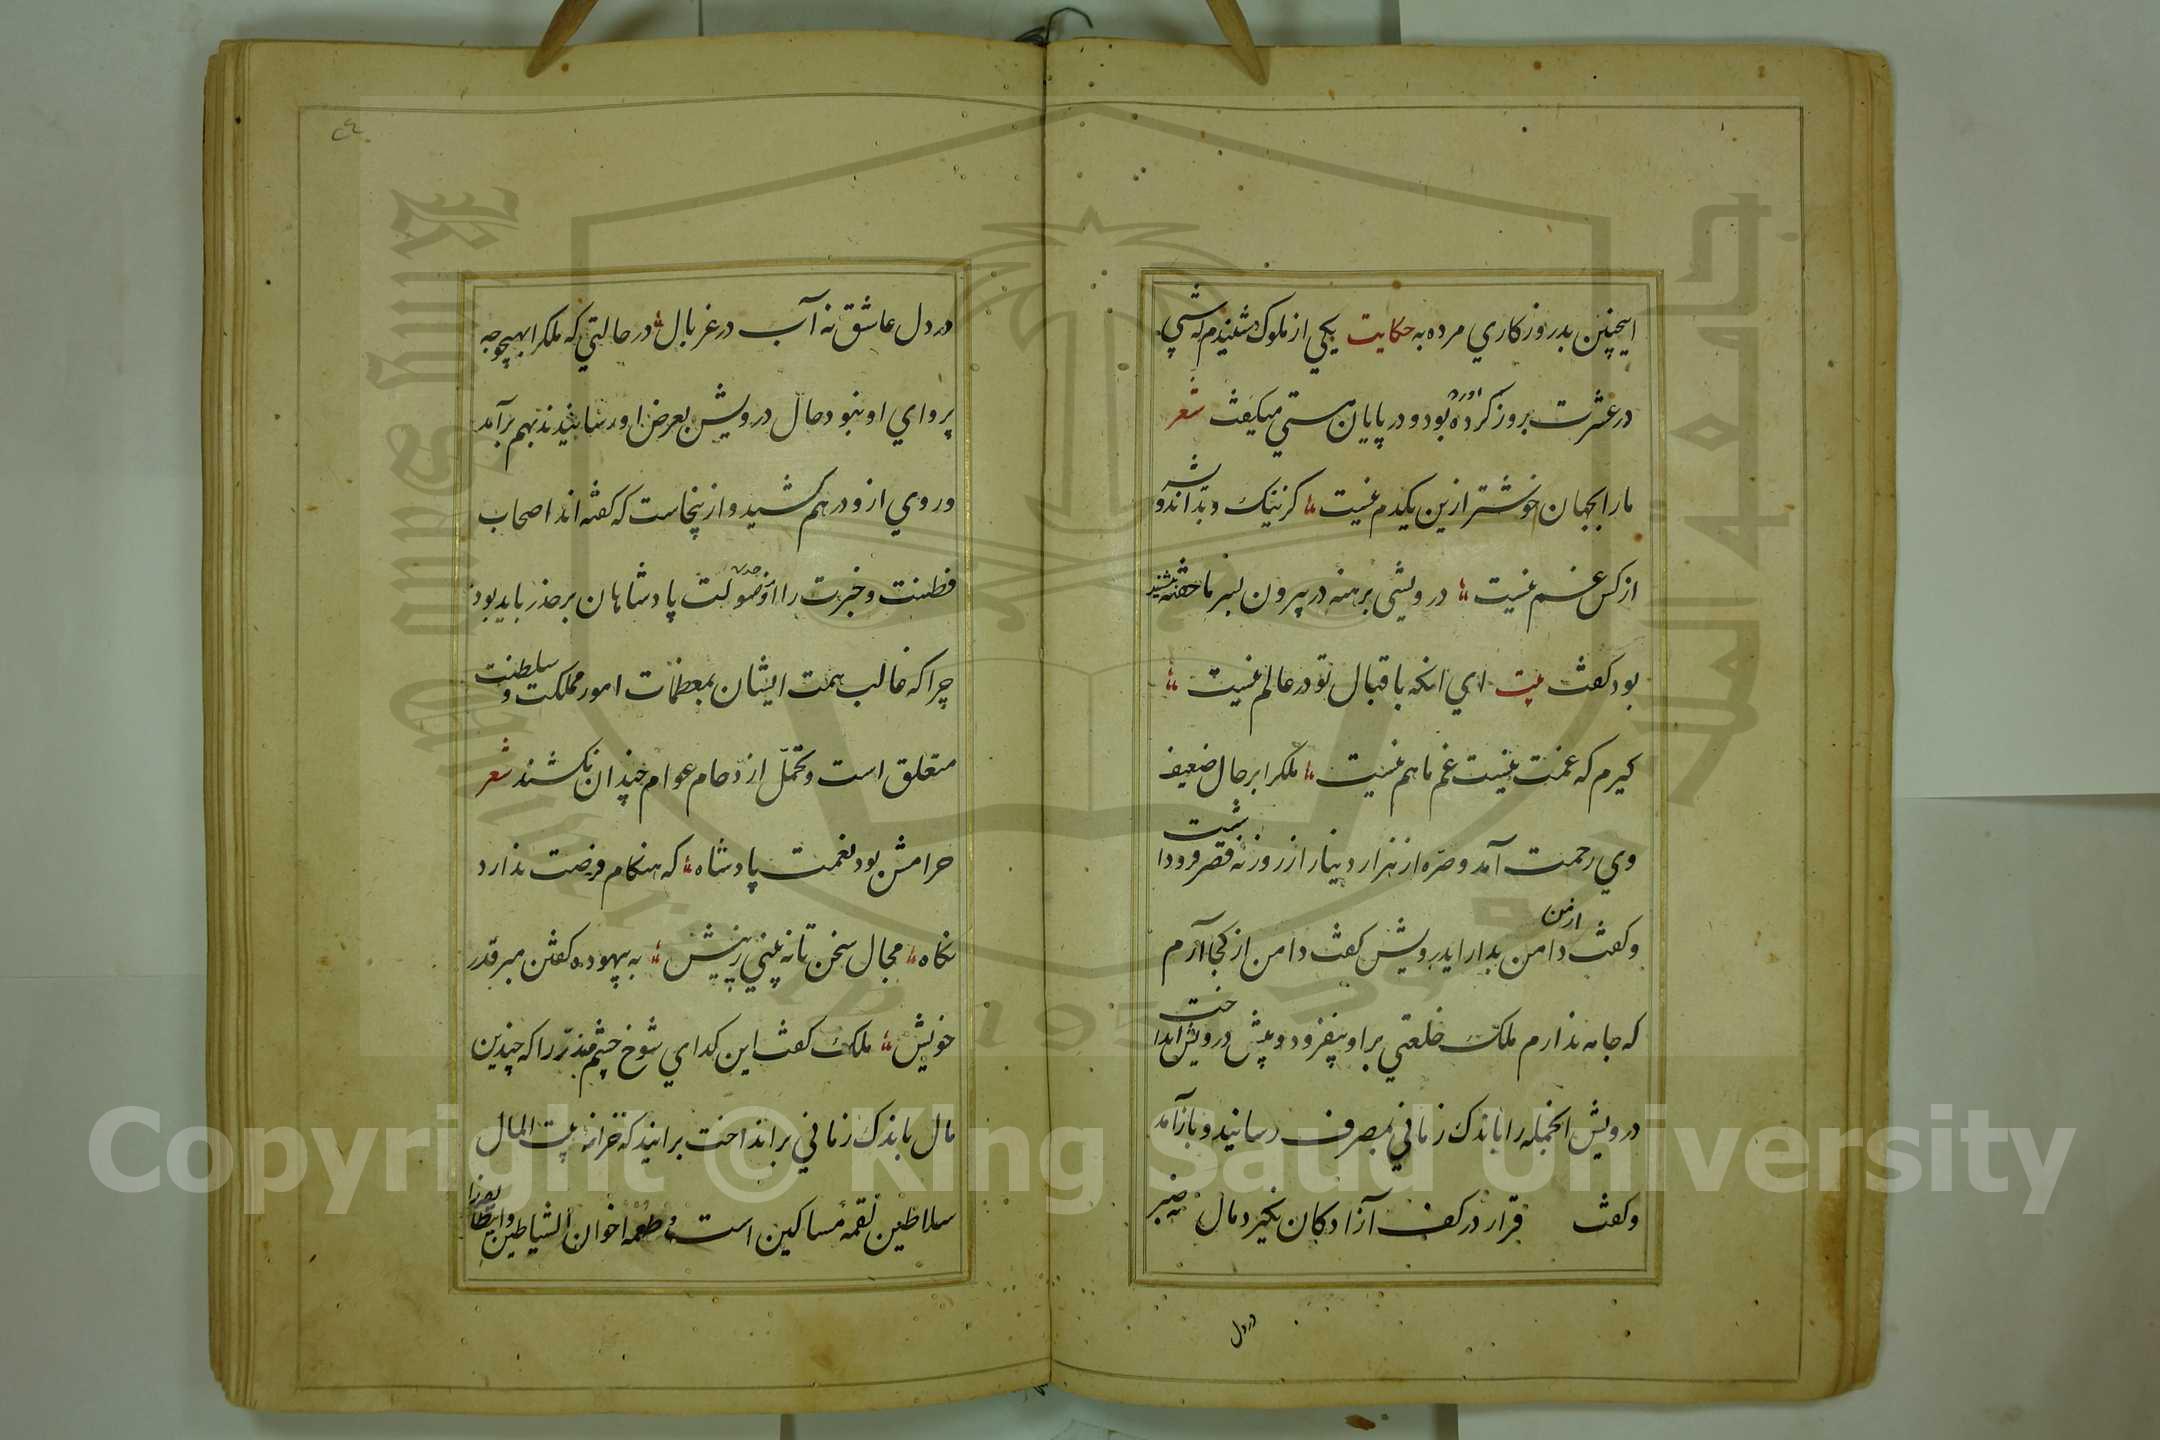 اینچنین بدروزکاري مرده به حکایت یکي از ملوک شنیدم که شبي
در عشرت بروز کرده بود و در پایان مستي میکفت شعر
مارا بجهان خوشتر ازین یکدم نیست کز نیک و بد اندیشه و
از کس غم نیست درویشی برهنه در بیرون بسرما خفته
بود کفت بیت اي انکه باقبال تو در عالم نیست
کیرم که غمت نیست غم ما هم نیست ملکرا بر حال ضعیف
وي رحمت آمد و صره از هزار دینار از روزنه قصر فرو داشت
و کفت دامن بدار ایدرویش کفت دامن از کجا آرم
که جامه ندارم ملک خلعتي بر او بیفزود و پیش درویش انداخت
درویش انجمله را باندک زماني بمصرف رسانید و بازآمد
و کفت قرار در کف آزادکان نکیرد مال نه صبر
در دل
در دل عاشق نه آب در غربال در حالتي که ملکرا بهیچوجه
پرواي او نبود حال درویش بعرض او رسانیدند بهم برآمد
و روي ازو درهم کشید و ازینجاست که کفته اند اصحاب
فطنت و خبرت را از صولت پادشاهان بر حذر باید بود
چرا که غالب همت ایشان بمعظمات امور مملکت و سلطنت
متعلق است و تحمل ازدحام عوام چندان نکنند شعر
حرامش بود نعمت پادشاه که هنکام فرصت ندارد
نکاه مجال سخن تا نه بیني ز پیش به بیهوده کفتن مبر قدر
خویش ملک کفت این کداي شوخ چشم مبذر را که چندین
مال باندک زماني برانداخت برانید که خزانه بیت المال
سلاطین لقمه مساکین است و طعمه اخوان الشیاطین
Copyright © King Saud University